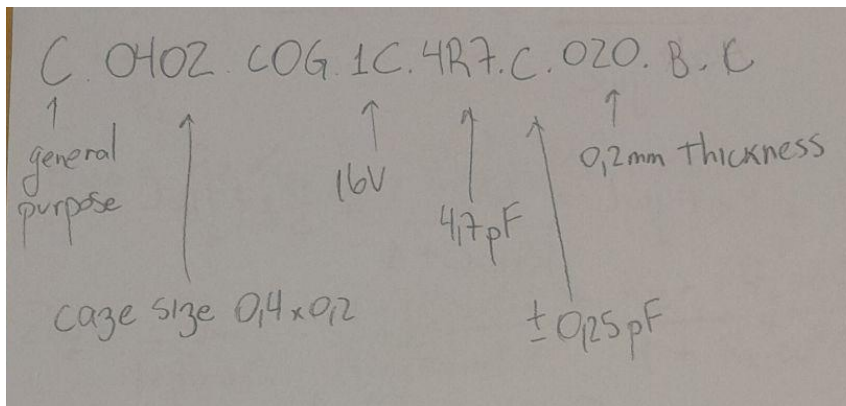 C. 0402. COG. 1C. 4R7. C. 020. B. C
general
purpose
16V
4,7pF
0,2mm thickness
caze size 0,4x0,2
±0,25pF